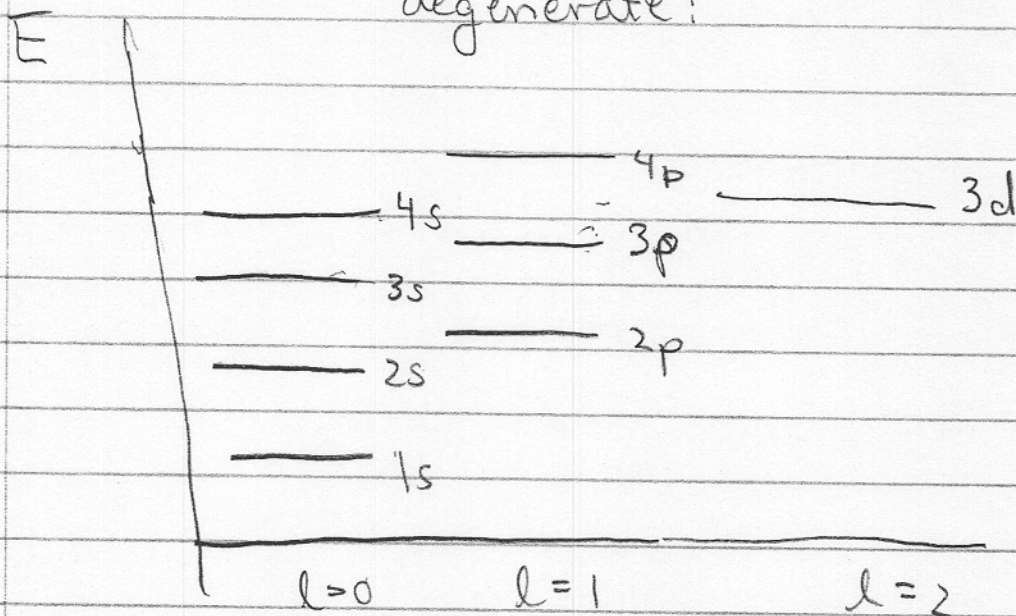 degenerate!
E
4p
3d
4s
3p
3s
2p
2s
1s
l=0 l=1 l=2